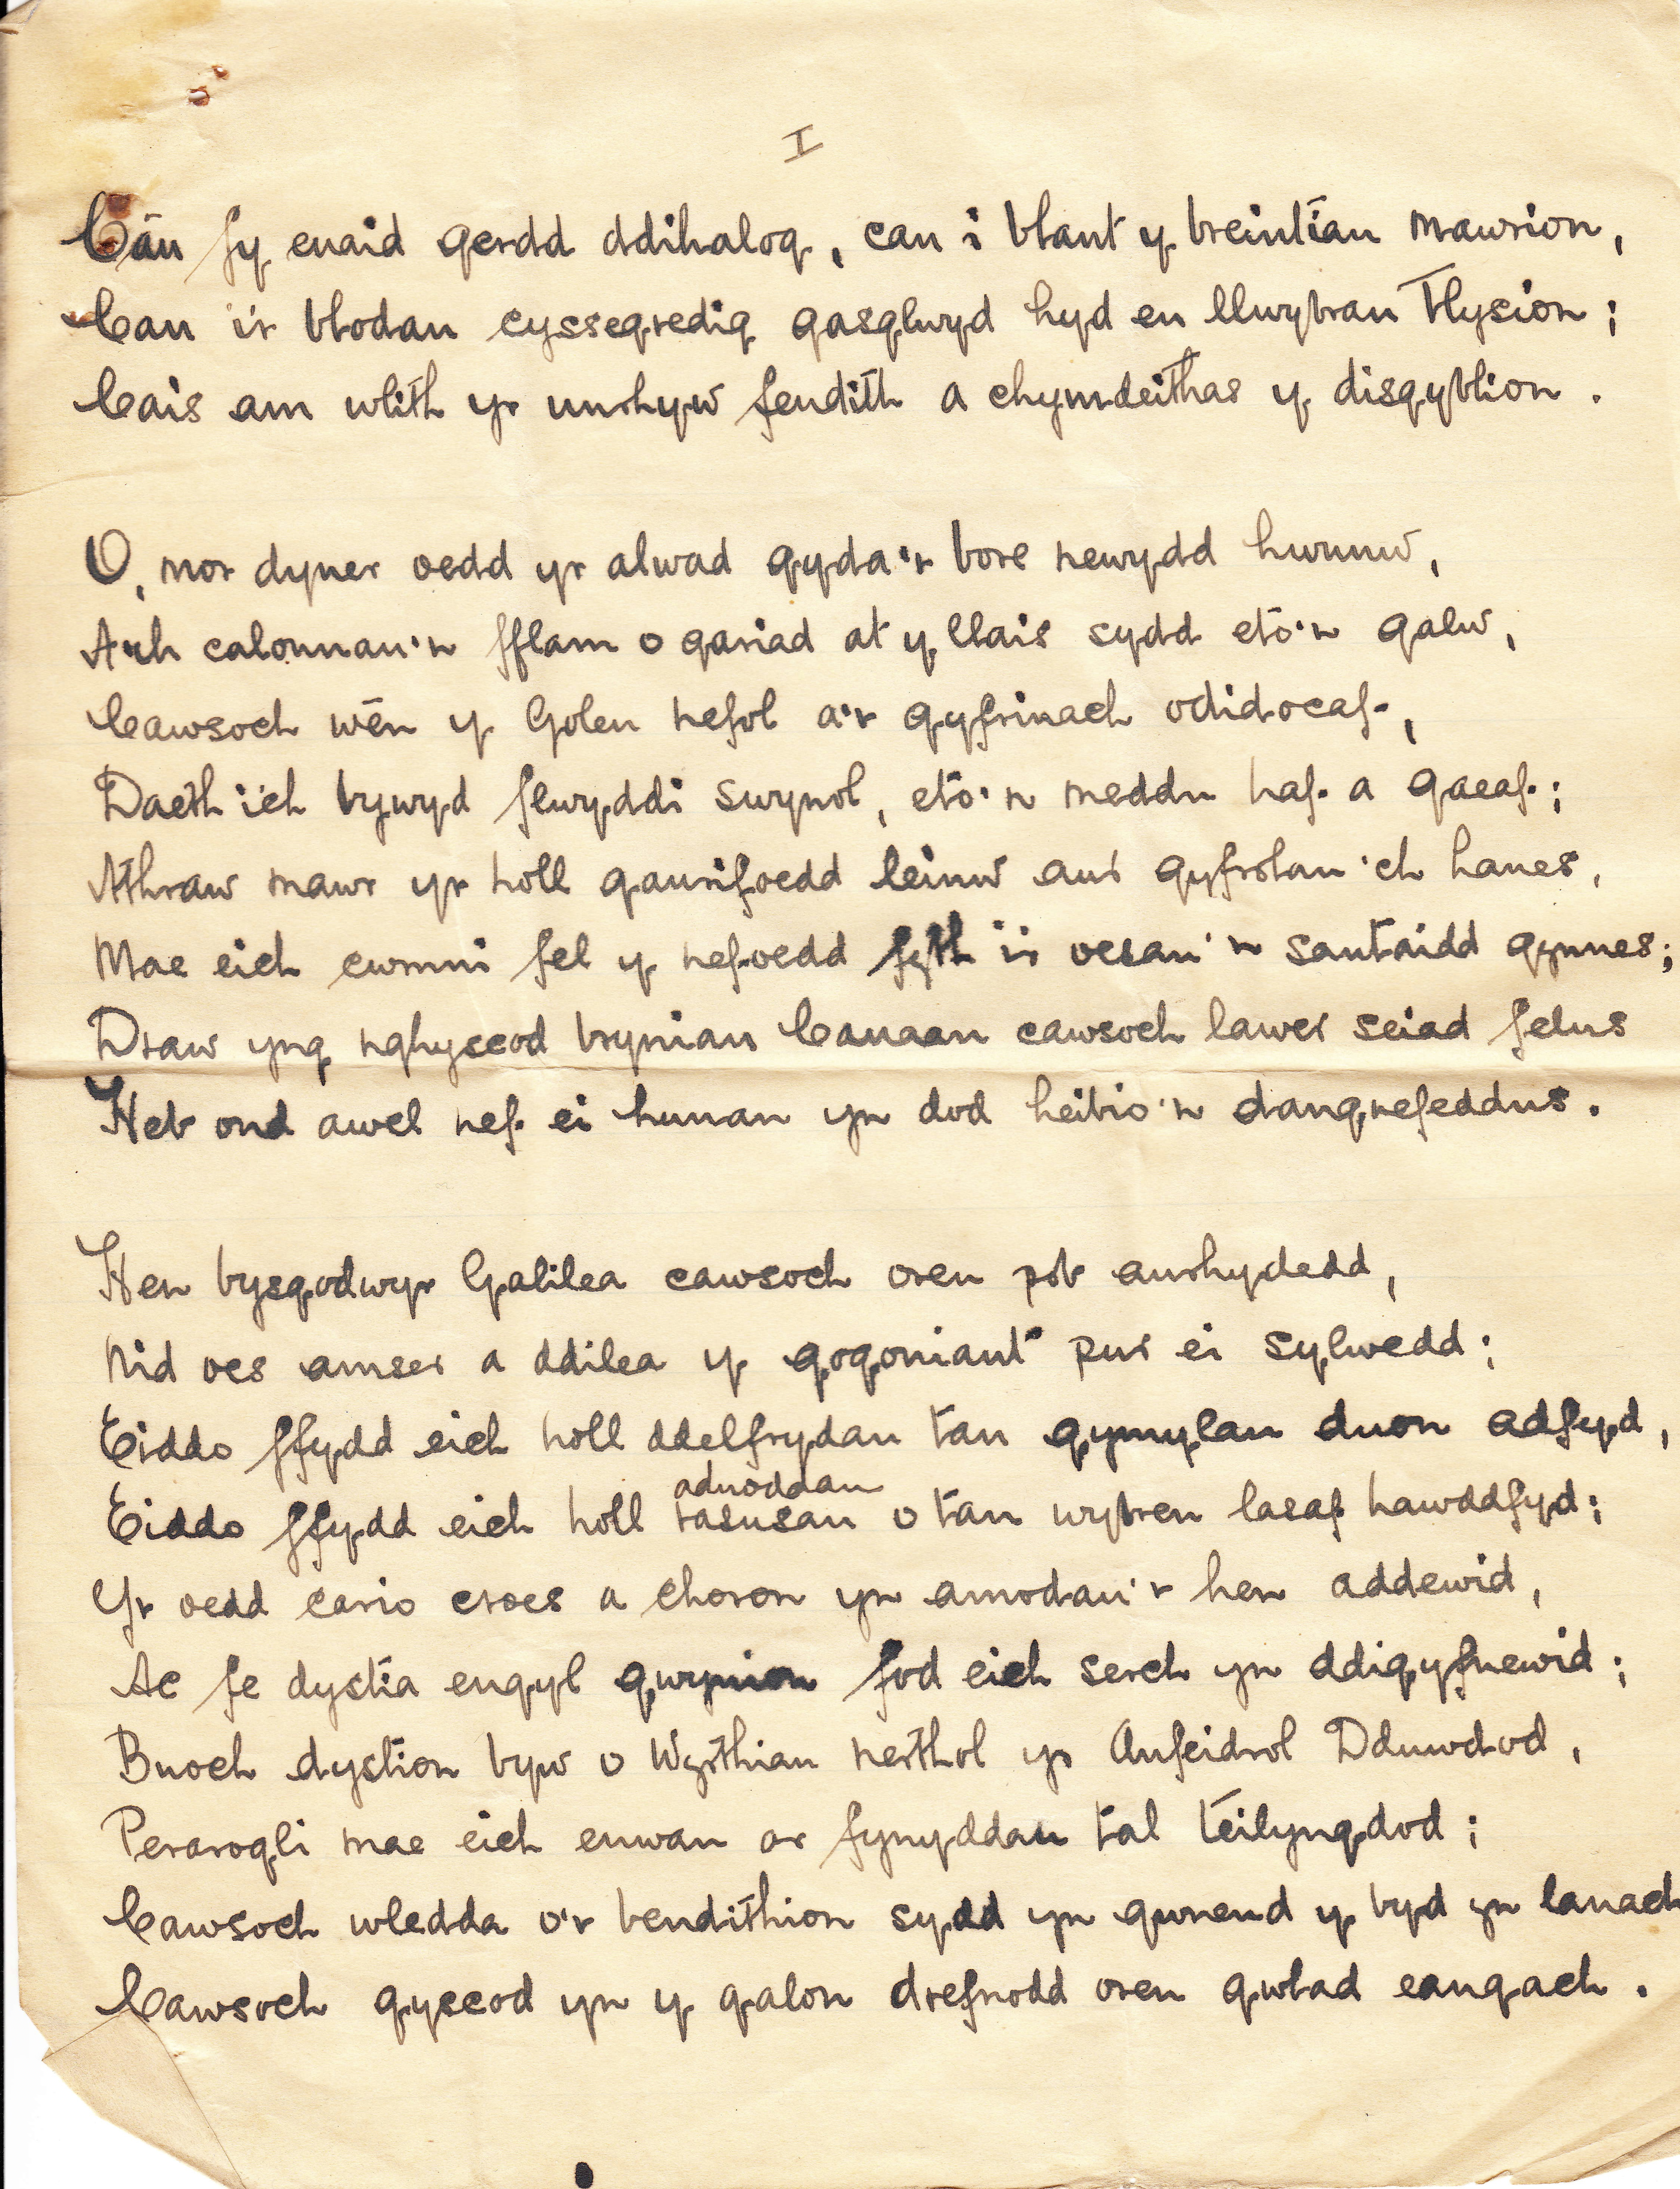 I
Cân fy enaid gerdd ddihalog, can i blant y breintiau mawrion,
Can i'r blodau cyssegredig gasglwyd hyd eu llwybrau tlysion;
Cais am wlith yr unrhyw fendith a chymdeithas y disgyblion.
O, mor dyner oedd yr alwad gyda'r bore newydd hwnnw,
A'ch calonnau'n fflam o gariad at y llais sydd eto'n galw,
Cawsoch wên y Goleu nefol a'r gyfrinach odidocaf,
Daeth i'ch bywyd flwyddi swynol, eto'n meddu haf a gaeaf;
Athraw mawr yr holl ganrifoedd leinw aur gyfrolau'ch hanes,
Mae eich cwmni fel y nefoedd fyth i'r oesau'n santaidd gynnes;
Draw yng nghyscod bryniau Canaan cawsoch lawer seiad felus
Heb ond awel nef ei hunan yn dod heibio'n dangnefeddus.
Hen bysgodwyr Galilea cawsoch oreu pob anrhydedd,
Nid oes amser a ddilea y gogoniant pur ei sylwedd;
Eiddo ffydd eich holl ddelfrydau tan gymylau duon adfyd,
adnoddau
Eiddo ffydd eich holl rasusau o tan wybren lasaf hawddfyd;
Yr oedd cario croes a choron yn amodau'r hen addewid,
Ac fe dystia engyl gwynion fod eich serch yn ddigyfnewid;
Buoch dystion byw o Wyrthiau nerthol yr Anfeidrol Dduwdod,
Perarogli mae eich enwau ar fynyddau tal teilyngdod;
Cawsoch wledda o'r bendithion sydd yn gwneud y byd yn lanach
Cawsoch gyscod yn y galon drefnodd oreu gwlad eangach.